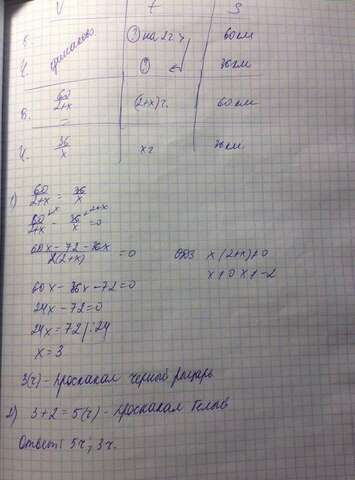 V t S
Б. одинаково ? на 2 г. > 60 км
Ч. ? 36 км
Б. 60/2+x (2+x) г. 60 км
Ч. 36/x x г 36 км
1) 60/2+x = 36/x
60/2+x - 36/x = 0
60x - 72 - 36x / x(2+x) = 0 ОДЗ x(2+x)≠0
x≠0 x≠-2
60x - 36x - 72 = 0
24x - 72 = 0
24x = 72 |:24
x = 3
3(ч) - проскакал черный рыцарь
2) 3+2 = 5(ч) - проскакал белый
Ответ: 5ч; 3ч.